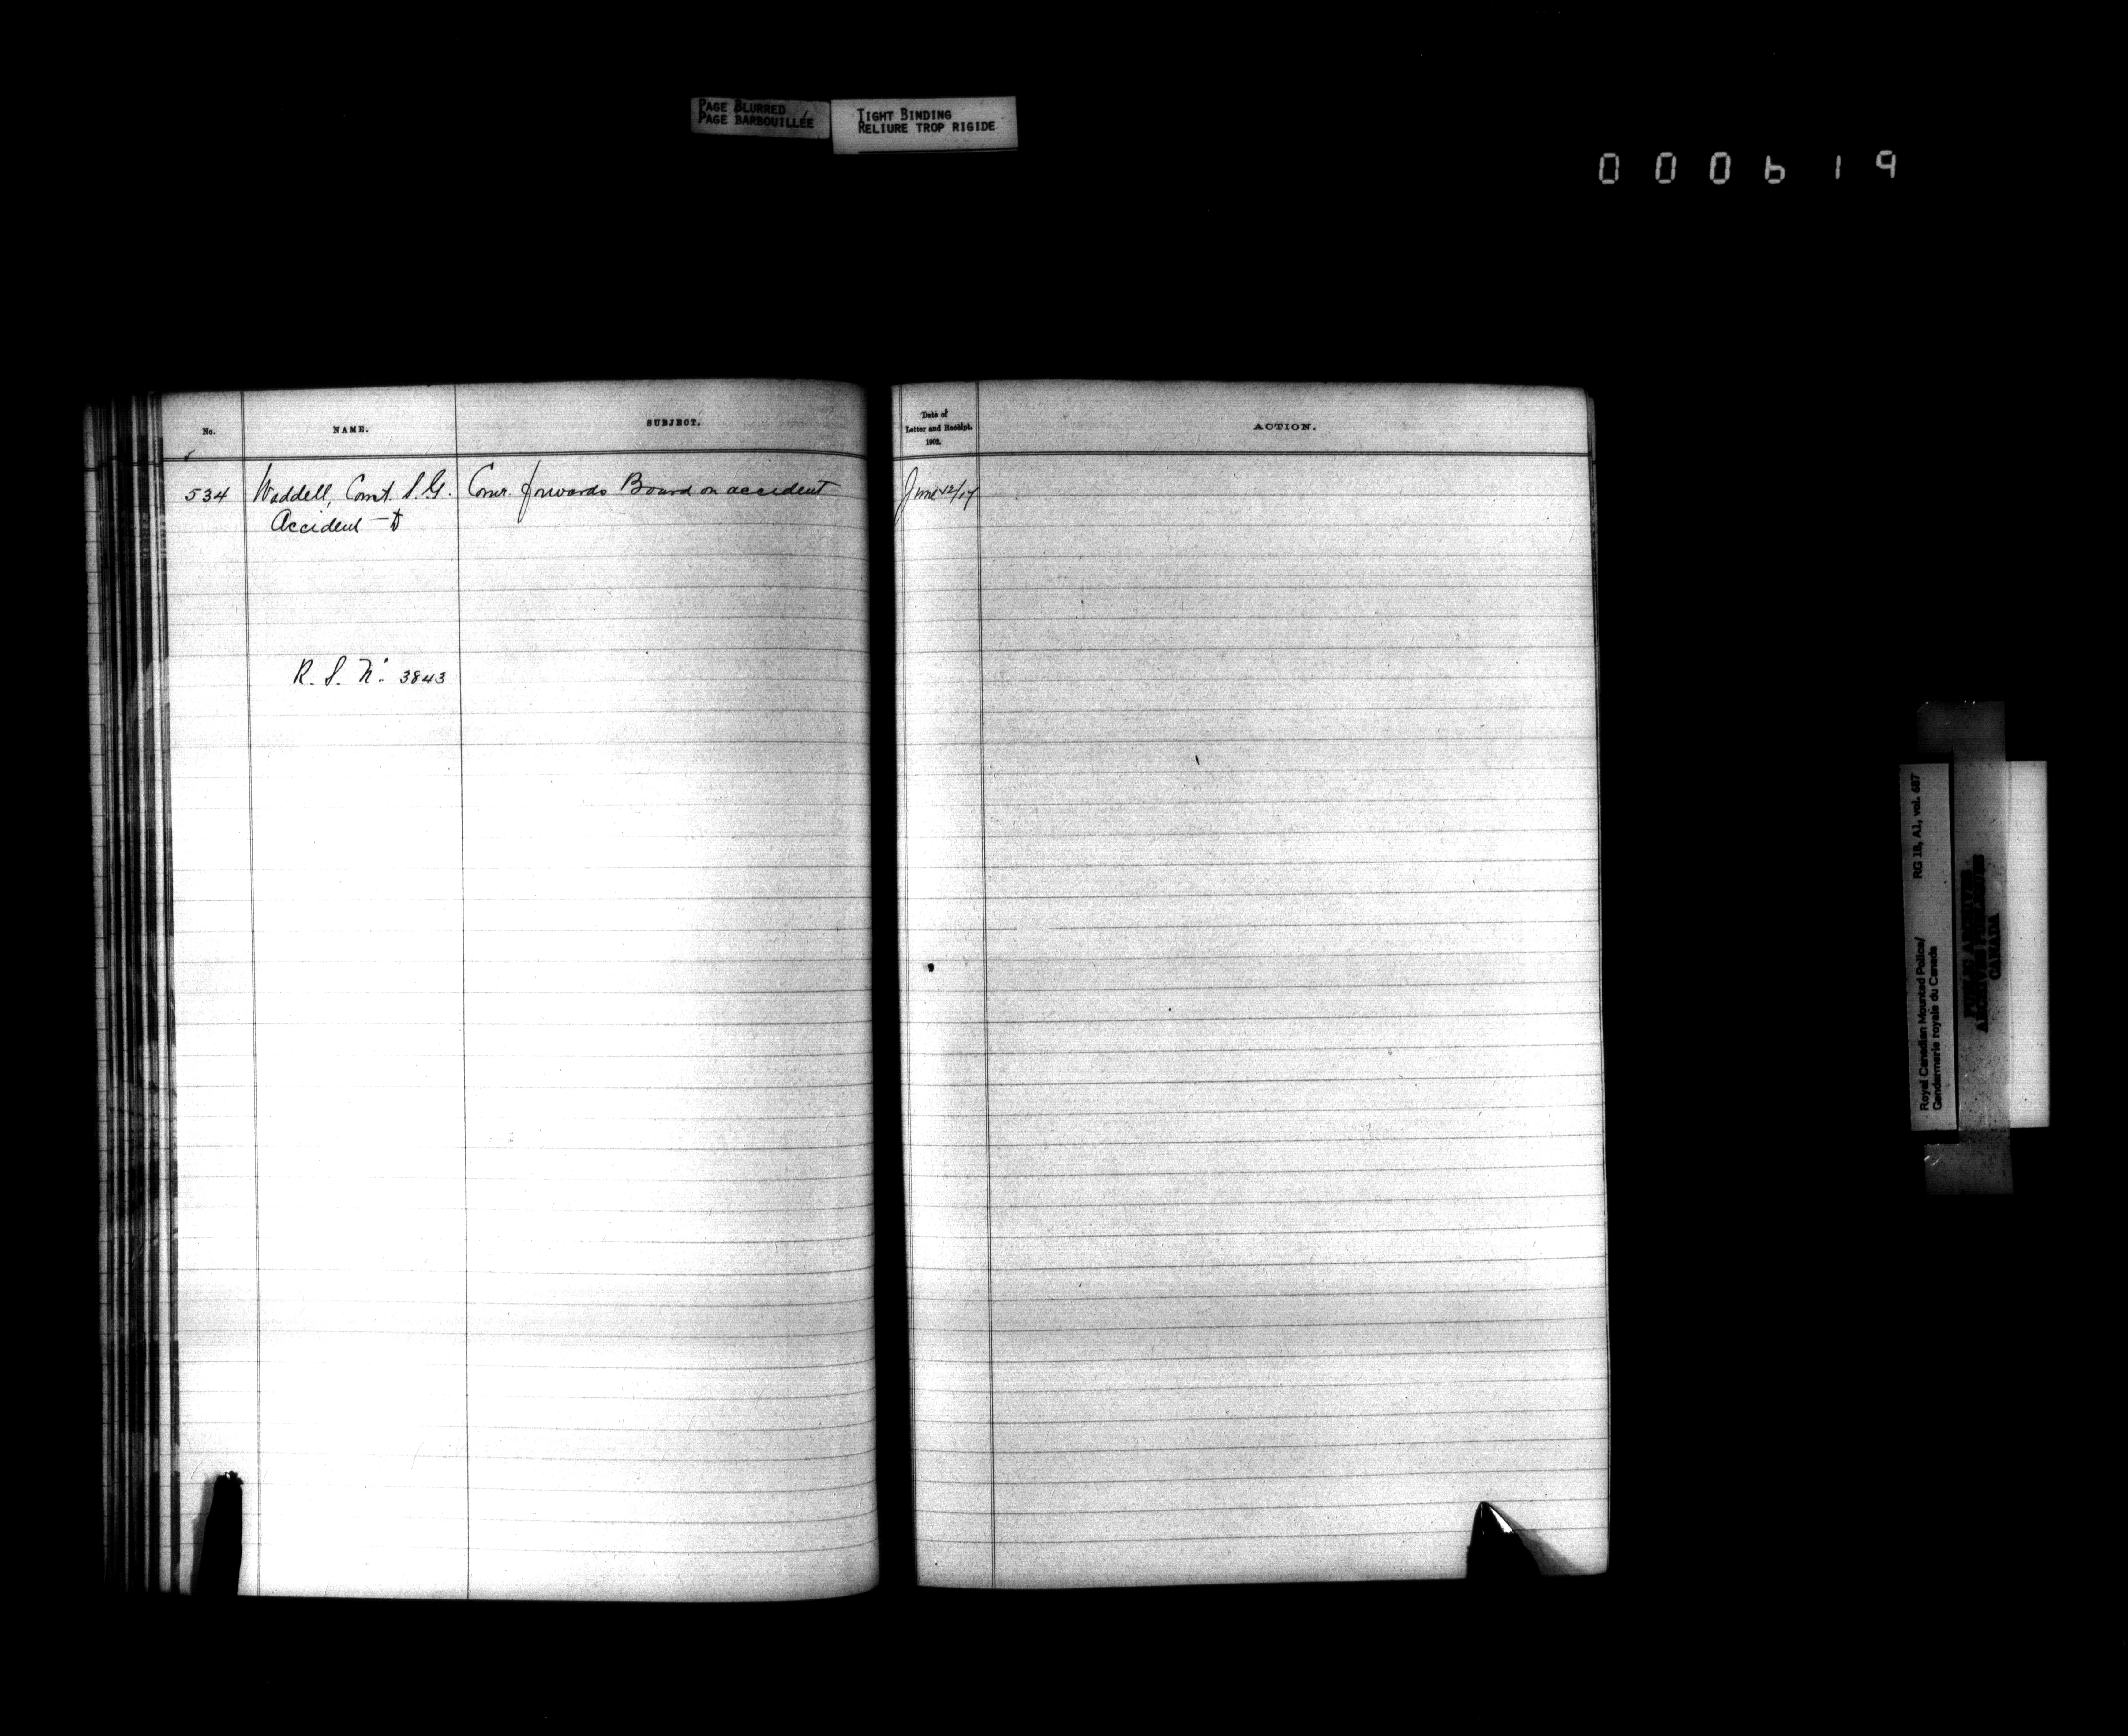 PAGE BLURRED
PAGE BARBOUILLÉE
TIGHT BINDING
RELIURE TROP RIGIDE
000619
No.
NAME.
SUBJECT.
Date of
Letter and Receipt.
1902.
ACTION.
534 Waddell, Const. S.G. Comr. forwards Board on accident June 12/17
Accident – to
R. S. No. 3843
RG 18, A1, vol. 687
Royal Canadian Mounted Police/
Gendarmerie royale du Canada
PUBLIC ARCHIVES
ARCHIVES PUBLIQUES
CANADA